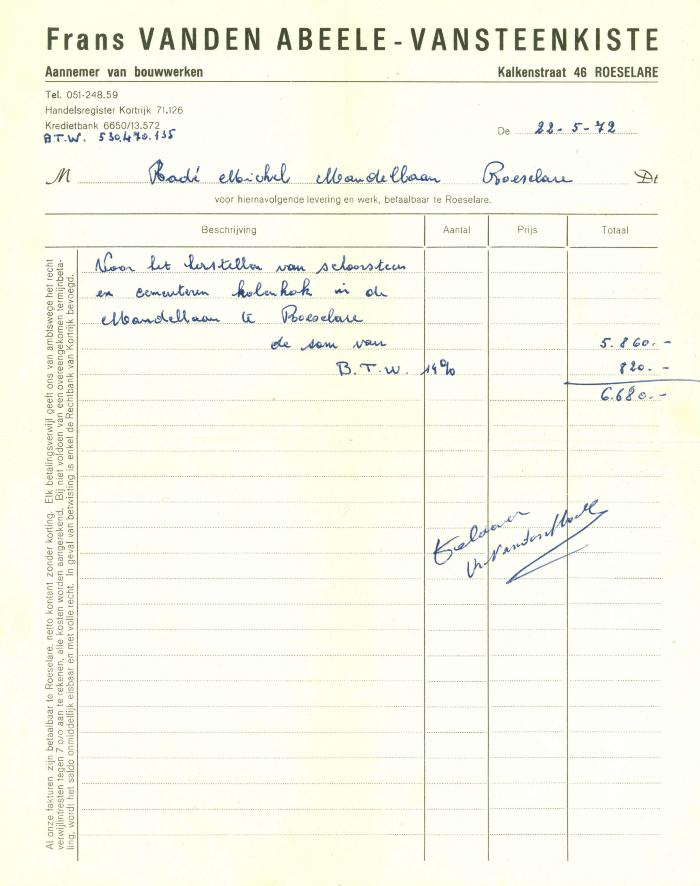 Frans VANDEN ABEELE-VANSTEENKISTE
Aannemer van bouwwerken
Kalkenstraat 46 ROESELARE
Tel. 051-248.59
Handelsregister Kortrijk 71.126
Kredietbank 6650/13.572
B.T.W. 530.470.135
De 22-5-72
M Radé Michel Mandellaan Roeselare Dt
voor hiernavolgende levering en werk, betaalbaar te Roeselare.
Beschrijving Aantal Prijs Totaal
Voor het herstellen van schoorsteen
en cementeren kolenhok in de
Mandellaan te Roeselare
de som van 5.860.-
B.T.W. 14% 820.-
6.680.-
Voldaan
Al onze fakturen zijn betaalbaar te Roeselare, netto kontant zonder korting. Elk betalingsverwijl geeft ons van ambtswege het recht
verwijlintresten tegen 7 o/o aan te rekenen, alle kosten worden aangerekend. Bij niet voldoen van een overeengekomen termijnbeta-
ling, wordt het saldo onmiddellijk eisbaar en met volle recht. In geval van betwisting is enkel de Rechtbank van Kortrijk bevoegd.